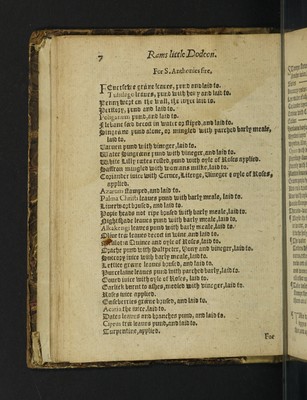 7 Rams little Dodeon.
For S. Anthonies fire.
leaves, pund and laid to.
leaves, pund with hony and laid to.
Pennywort on the wall, the iuyce laid to.
pund, and laid to.
Poligonum pund, and laid to.
Fleabane sod in water and laid to.
Singreene pund alone, or mingled with parched barly meale,
laid to.
pund with vineger, laid to.
Water Singreene pund with vineger, and laid to.
White Lilly rootes rosted, pund with oyle of Roses applied.
Saffron mingled with womans milke, laid to.
Coriander iuice with Ceruse, Litarge, Vineger & oyle of Roses,
applied.
Azarum stamped, and laid to.
Palma Christi leaues pund with barly meale, laid to.
Liverwort brused, and laid to.
Popie heads not ripe brused with barly meale, laid to.
Nightshade leaues pund with barly meale, laid to.
Alkakengi leaues pund with barly meale, laid to.
Oliue tree leaues decoct in wine and laid to.
and oyle of Roses, laid to.
pund with Hony and vineger, laid to.
Succory iuice with barly meale, laid to.
Lettise greene brused, and laid to.
Purcelaine leaues pund with parched barly, laid to.
Gourd iuice with oyle of Roses, laid to.
burnt to ashes, mixed with vineger, laid to.
Roses iuice applied.
Gooseberries greene brused, and laid to.
Acatia the iuice, laid to.
Dates leaues and branches pund, and laid to.
leaues pund, and laid to.
Turpentine, applied.
For